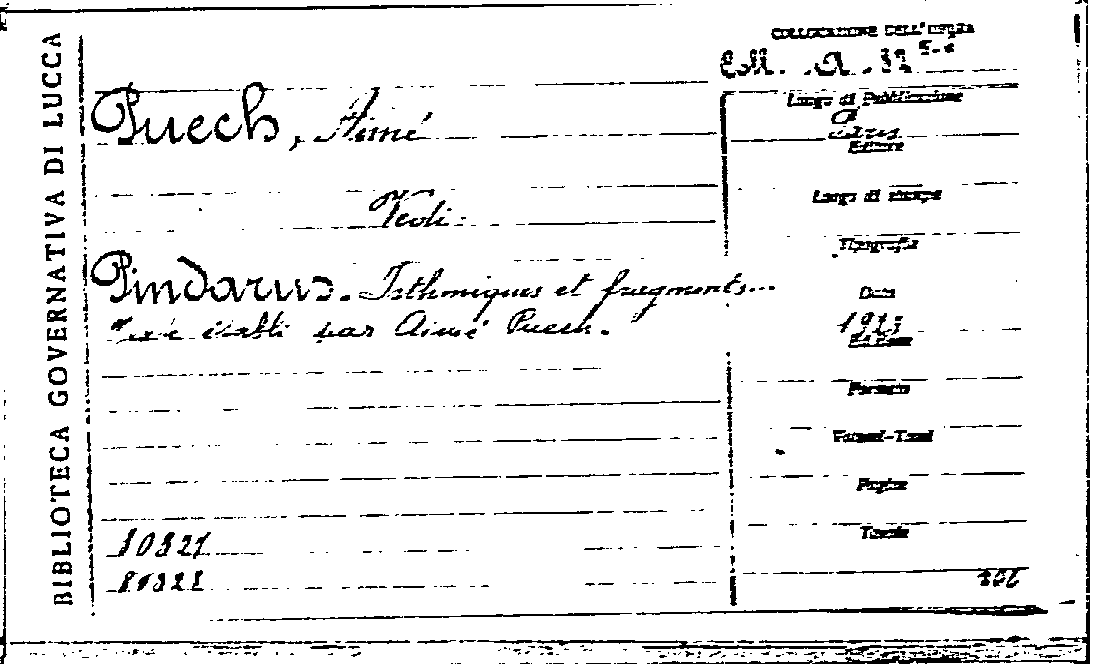 BIBLIOTECA GOVERNATIVA DI LUCCA
COLLOCAZIONE DELL'OPERA
Puech, Aimé
Vedi
Pindarus. Isthmiques et fragments...
établi par Aimé Puech.
Luogo di Pubblicazione
Paris
Editore
Luogo di stampa
Tipografia
Data
1923
Edizione
Formato
Volumi-Tomi
Pagine
Tavole